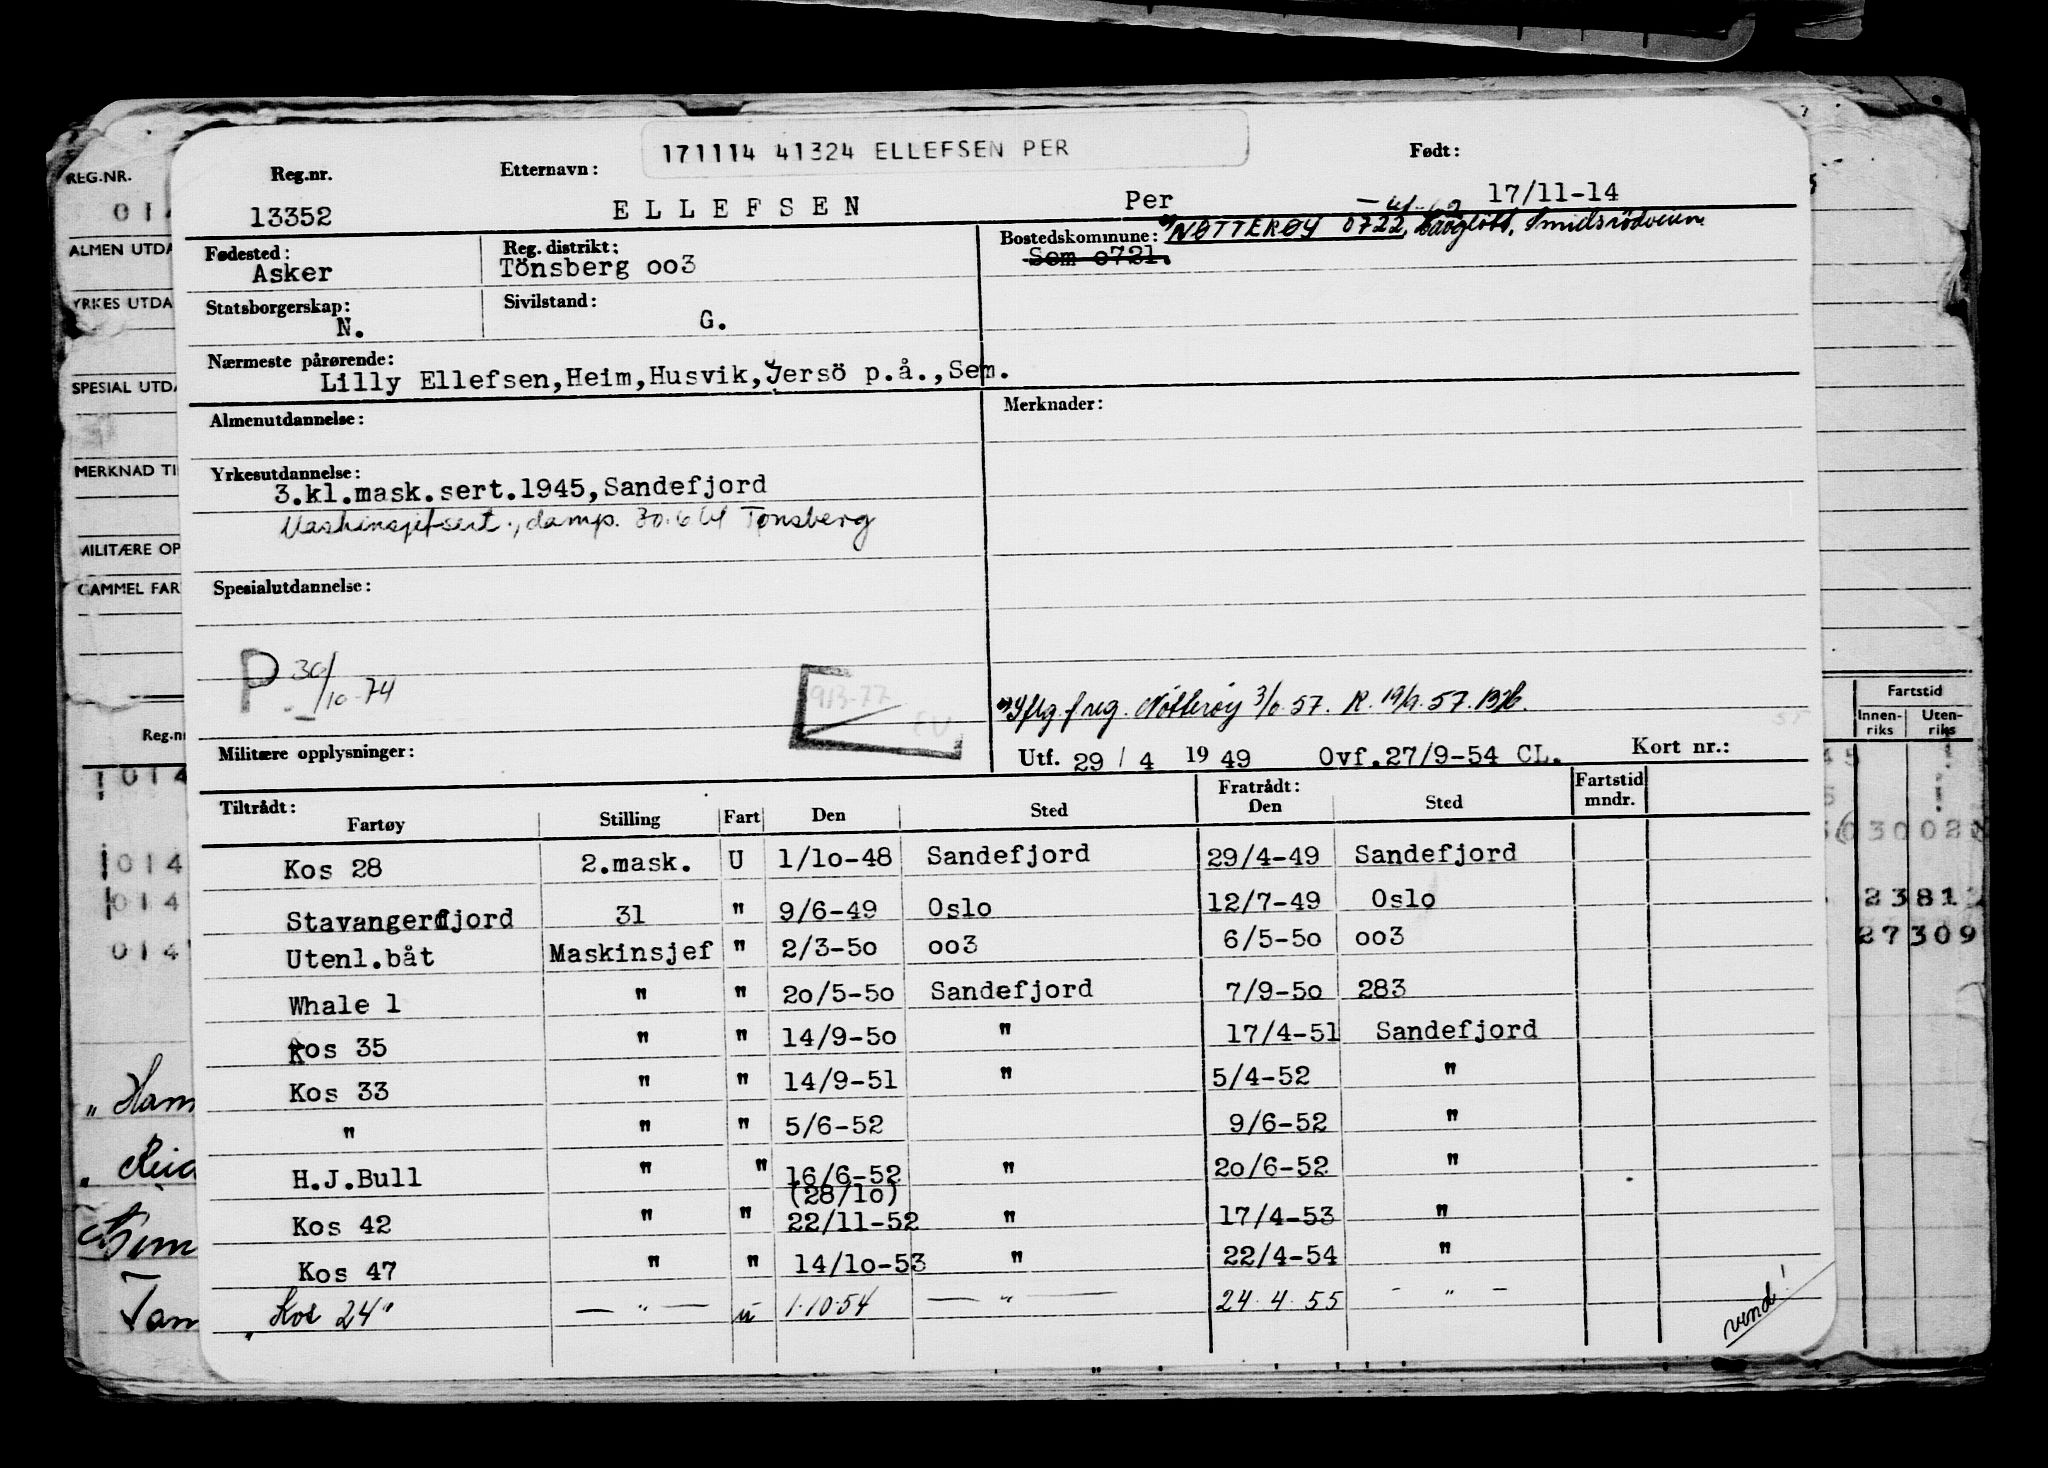 171114 41324 ELLEFSEN PER
Reg.nr. Etternavn: Født:
13352 ELLEFSEN Per 17/11-14
Fødested: Reg. distrikt: Bostedskommune: NØTTERØY 0722, Smidsrødveien
Asker Tönsberg oo3 Sem o721.
Statsborgerskap: Sivilstand:
N. G.
Nærmeste pårørende:
Lilly Ellefsen,Heim,Husvik,Jersö p.å.,Sem.
Almenutdannelse: Merknader:
Yrkesutdannelse:
3.kl.mask.sert.1945,Sandefjord
Maskinsjefsert., damp. 30.6.61 Tønsberg
Spesialutdannelse:
P 30/10-74
913-77
EU
Iflg. f reg. Nøtterøy 57. R. 57.
Militære opplysninger: Utf. 29/4 1949 Ovf.27/9-54 CL. Kort nr.:
Tiltrådt: Fratrådt: Fartstid
Fartøy Stilling Fart Den Sted Den Sted mndr.
Kos 28 2.mask. U 1/10-48 Sandefjord 29/4-49 Sandefjord
Stavangerfjord 31 " 9/6-49 Oslo 12/7-49 Oslo
Utenl.båt Maskinsjef " 2/3-5o oo3 6/5-5o oo3
Whale 1 " " 2o/5-5o Sandefjord 7/9-5o 283
Kos 35 " " 14/9-5o " 17/4-51 Sandefjord
Kos 33 " " 14/9-51 " 5/4-52 "
" " " 5/6-52 9/6-52 "
H.J.Bull " " 16/6-52 " 2o/6-52 "
(28/1o)
Kos 42 " " 22/11-52 " 17/4-53 "
Kos 47 " " 14/1o-53 " 22/4-54 "
"Kos 24" — " — u 1.10.54 — " — 24.4.55 - " -
vend!
REG.NR.
014
ALMEN UTDA
YRKES UTDA
SPESIAL UTDA
MERKNAD TI
MILITÆRE OP
GAMMEL FAR
Reg.nr
014
014
014
014
Fartstid
Innen-riks Uten-riks
030020
2381
27309